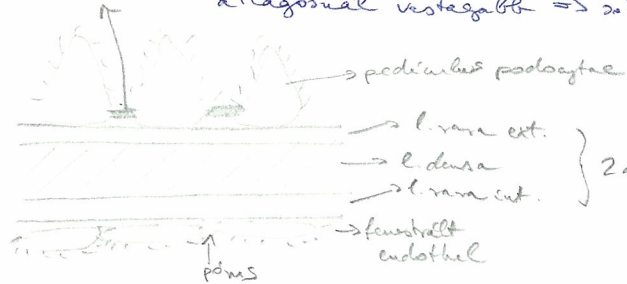 átlagosnál vastagabb =>
pediculus podocytae
l. rara ext.
l. densa
2.
l. rara int.
fenestrált
endothel
pórus